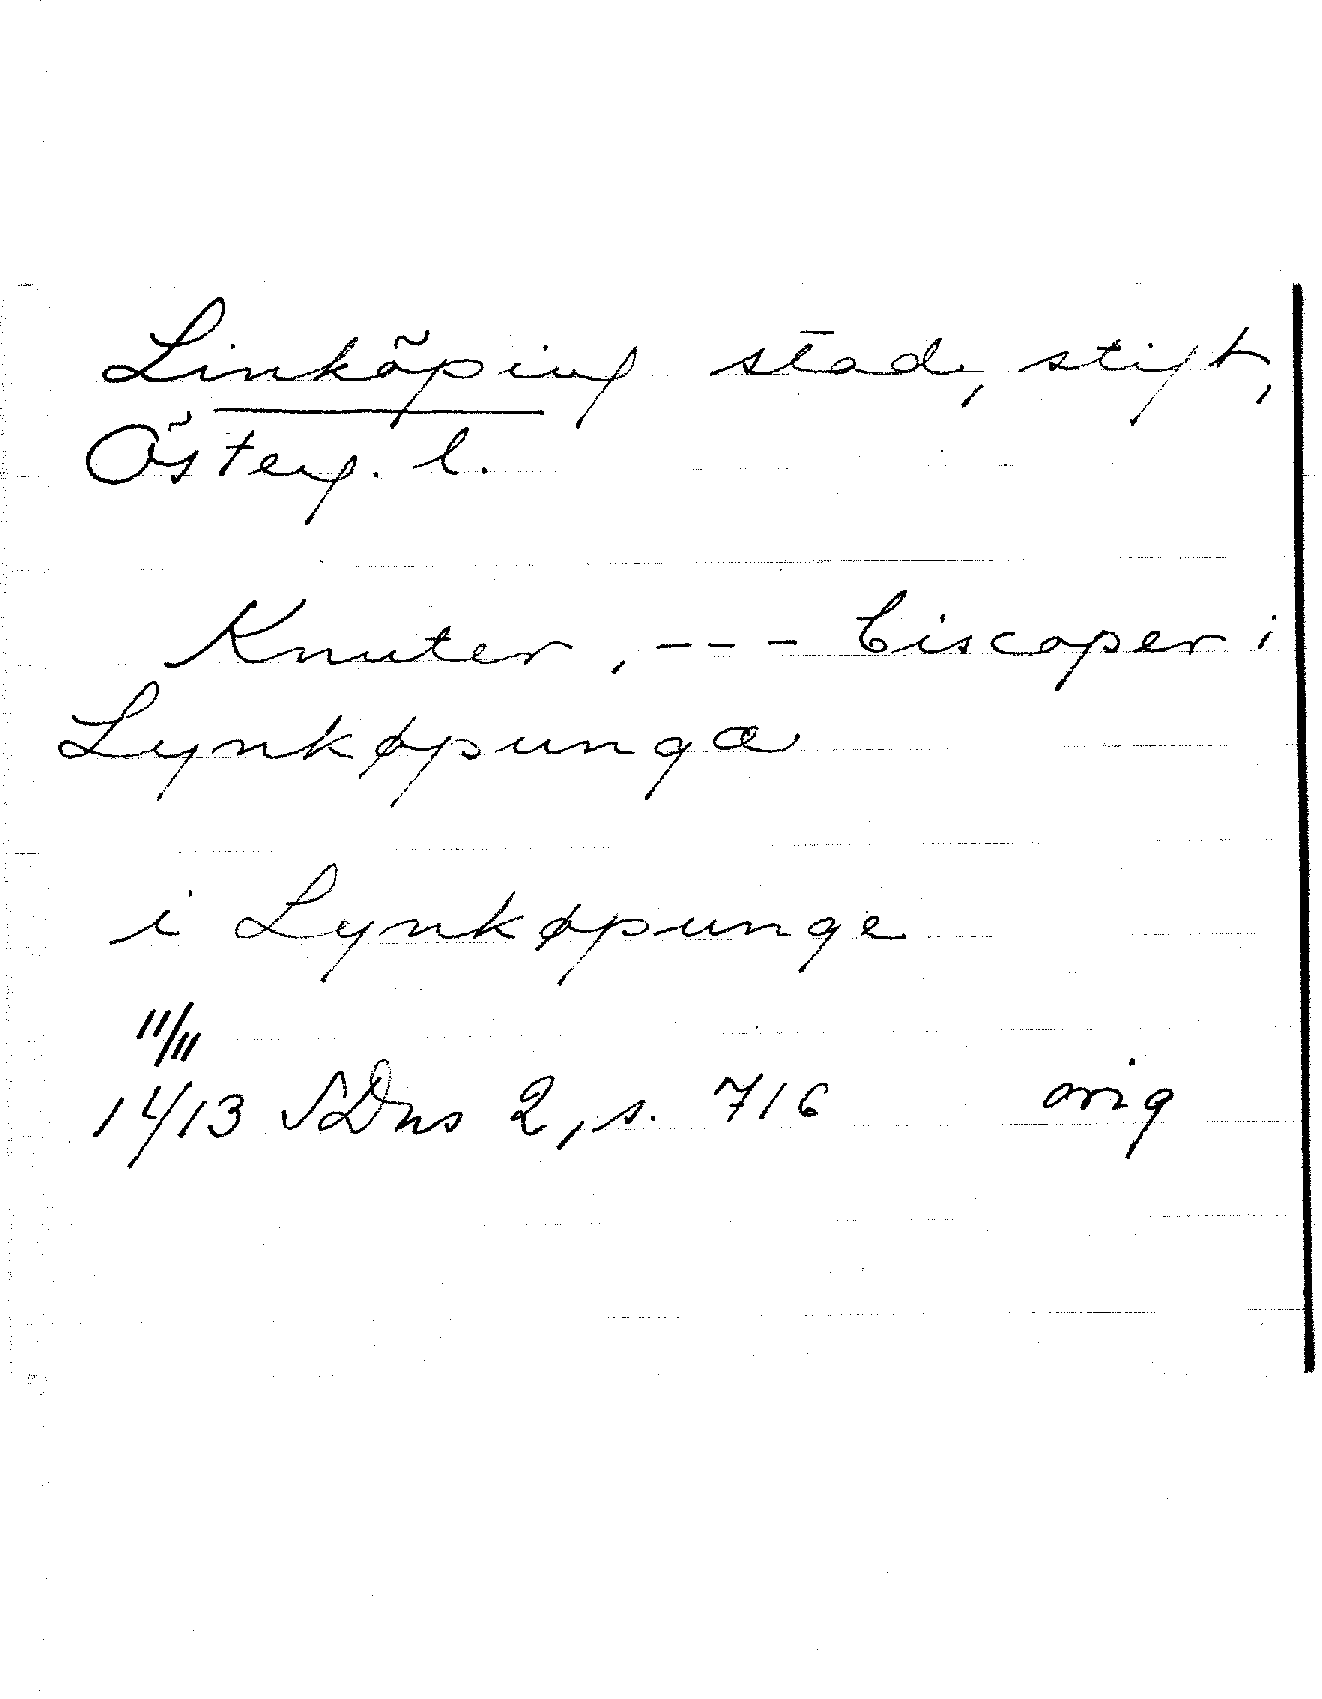 Linköping stad, stift,
Österg. l.
Knuter, --- biscoper i
Lynkøpunga
i Lynkøpunge
11/11
1413 SDns 2, s. 716 orig